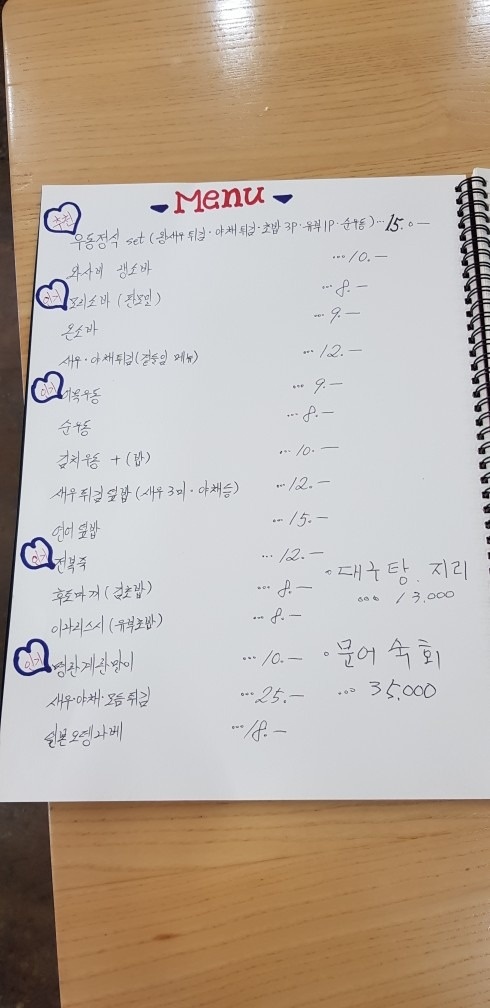 Menu
추천
우동정식 set (왕새우튀김·야채튀김·초밥 3P·유부1P·순우동) ··· 15.0 —
와사비 냉소바 ··· 10. —
인기
모리소바 (판모밀) ··· 8. —
온소바 ··· 9. —
새우·야채튀김 (곁들임 메뉴) ··· 12. —
인기
어묵우동 ··· 9. —
순우동 ··· 8. —
김치우동 + (밥) ··· 10. —
새우튀김덮밥 (새우 3미·야채 ··· 12. —
연어덮밥 ··· 15. —
인기
전복죽 ··· 12. —
후토마끼 (김초밥) ··· 8. —
이나리스시 (유부초밥) ··· 8. —
인기
명란계란말이 ··· 10. —
새우·야채·모듬튀김 ··· 25. —
일본오뎅나베 ··· 18. —
· 대구탕. 지리
··· 13.000
· 문어숙회
··· 35.000